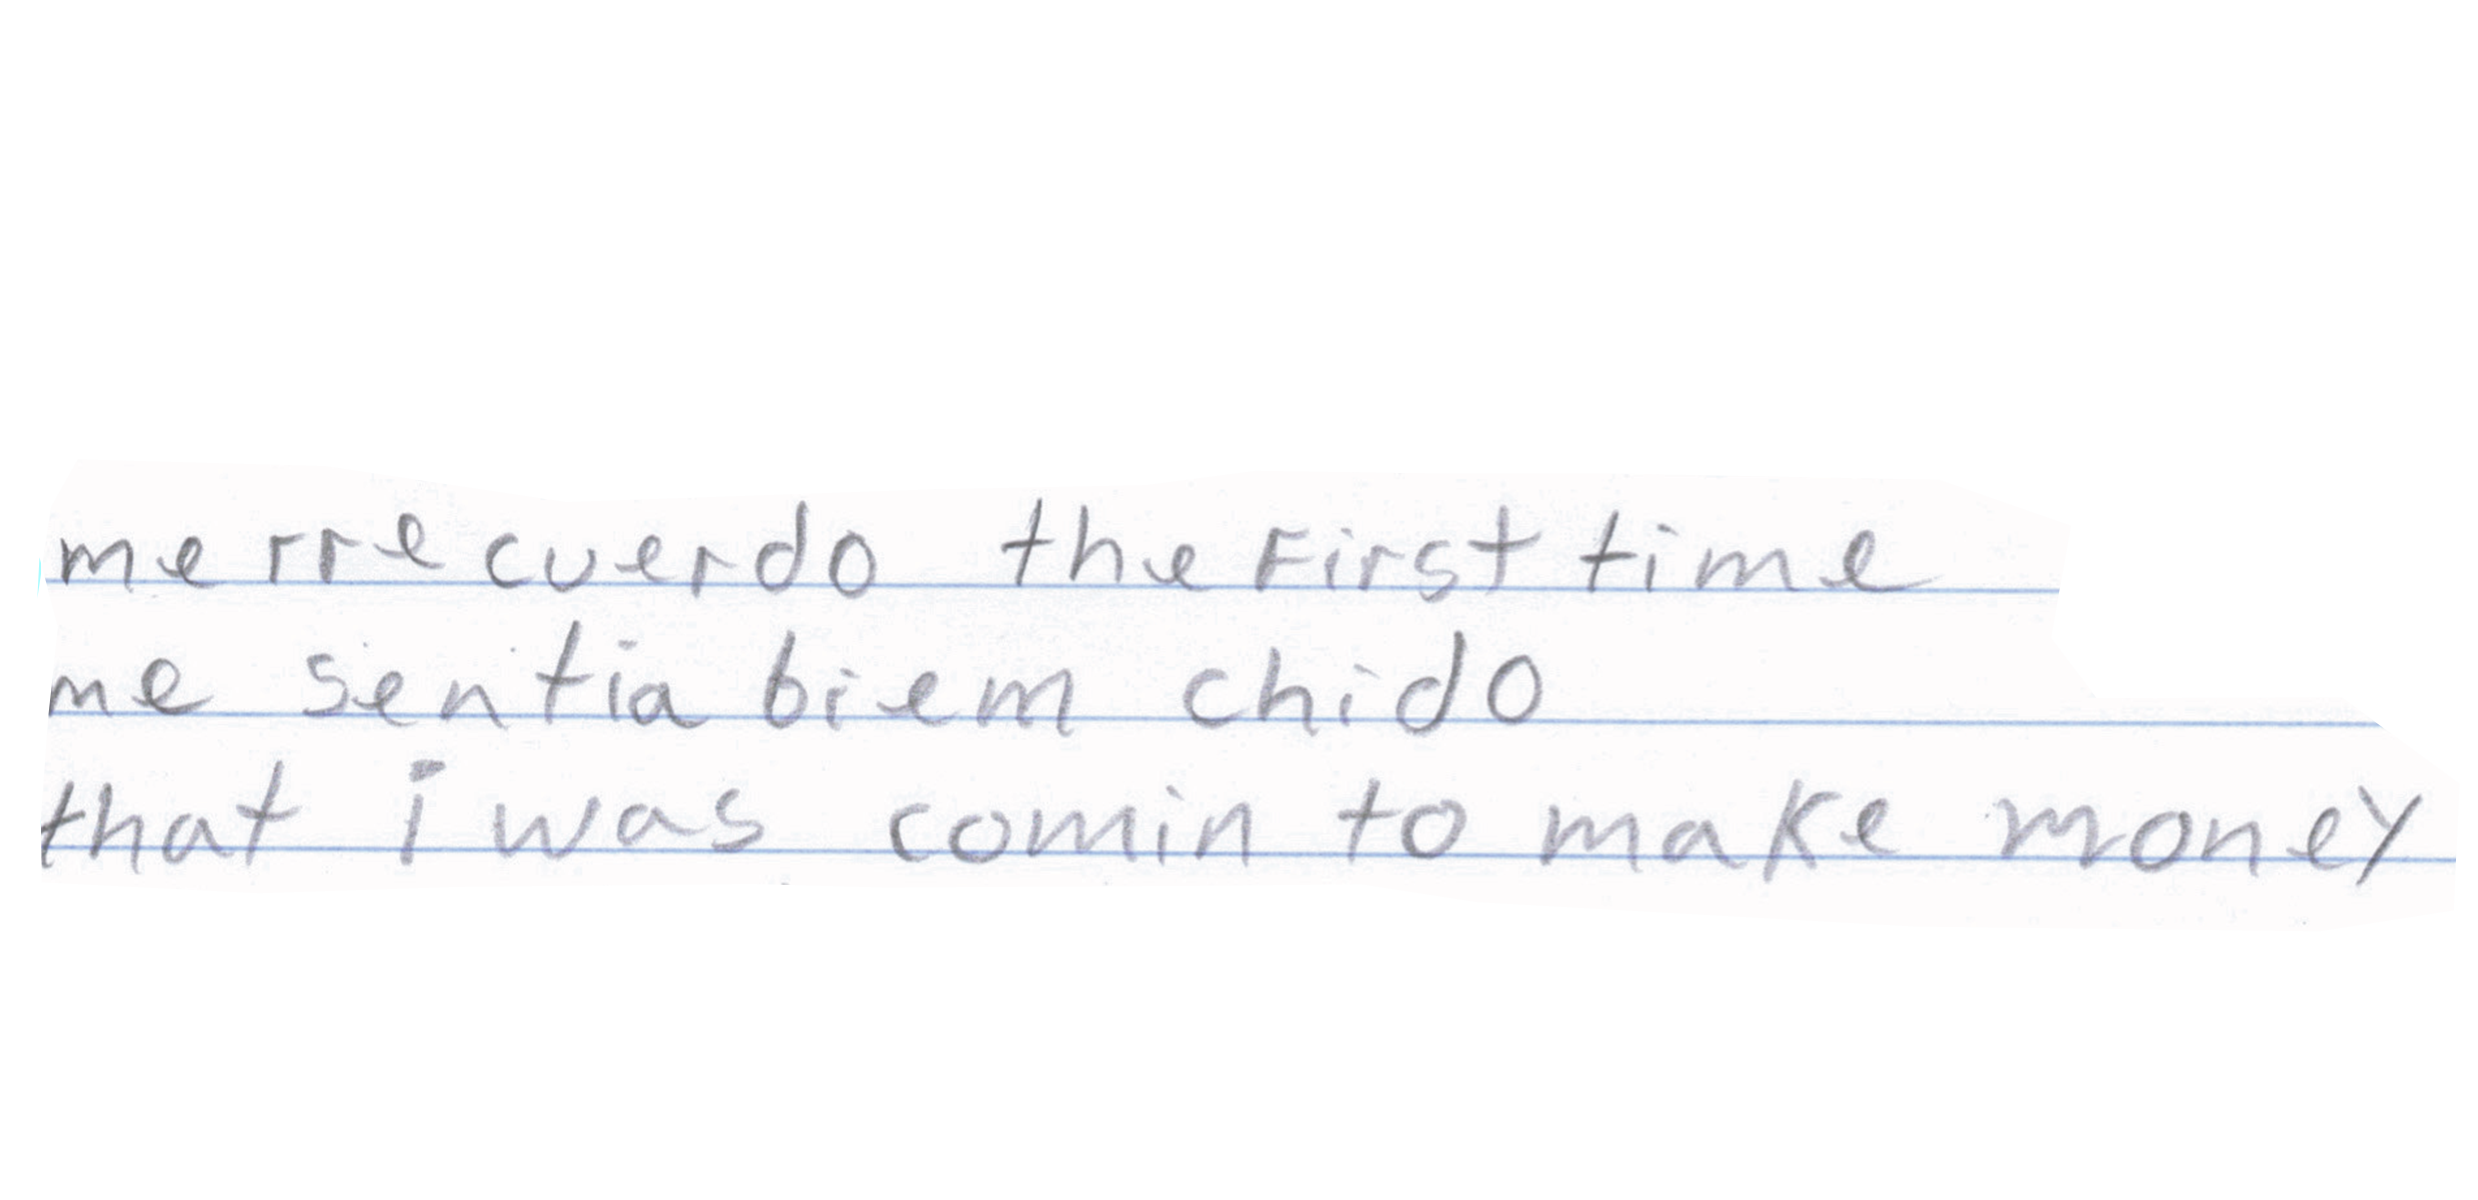 me rrecuerdo the First time
me sentia biem chido
that i was comin to make money